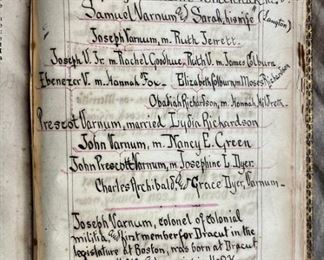 Samuel Varnum & Sarah, his wife (Langton)
Joseph Varnum, m. Ruth Jewett.
Joseph V. Jr. m. Rachel Goodhue, Ruth V. m. James Colburn.
Ebenezer V. m. Hannah Fox. Elizabeth Colburn m. Moses Richardson
Obadiah Richardson, m. Hannah
Prescot Varnum, married Lydia Richardson
John Varnum, m. Nancy E. Green
John Prescott Varnum, m. Josephine L. Dyer.
Charles Archibald, & Grace Dyer Varnum.
Joseph Varnum, colonel of colonial
militia, & first member for Dracut in the
legislature at Boston, was born at Dracut